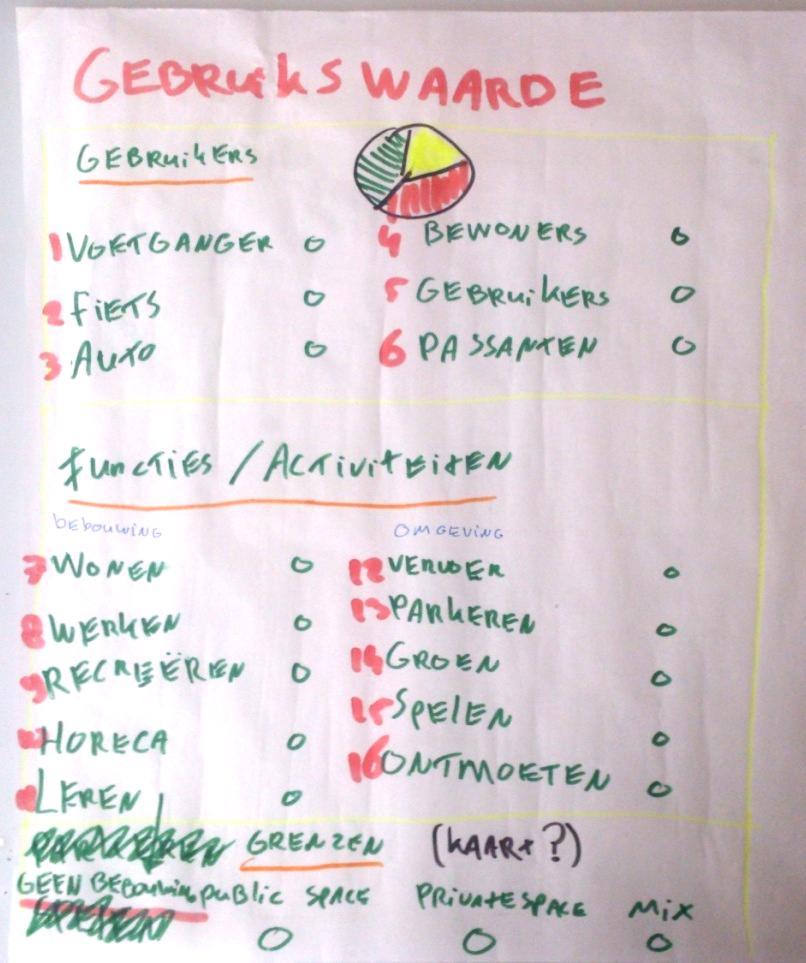 GEBRUIKSWAARDE
GEBRUIKERS
1 VOETGANGER
4 BEWONERS
2 FIETS
5 GEBRUIKERS
3 AUTO
6 PASSANTEN
FUNCTIES / ACTIVITEITEN
BEBOUWING
OMGEVING
7 WONEN
12 VERVOER
8 WERKEN
13 PARKEREN
9 RECREËREN
14 GROEN
15 SPELEN
HORECA
16 ONTMOETEN
LEREN
GRENZEN (KAART?)
GEEN BEBOUWING
PUBLIC SPACE PRIVATE SPACE MIX